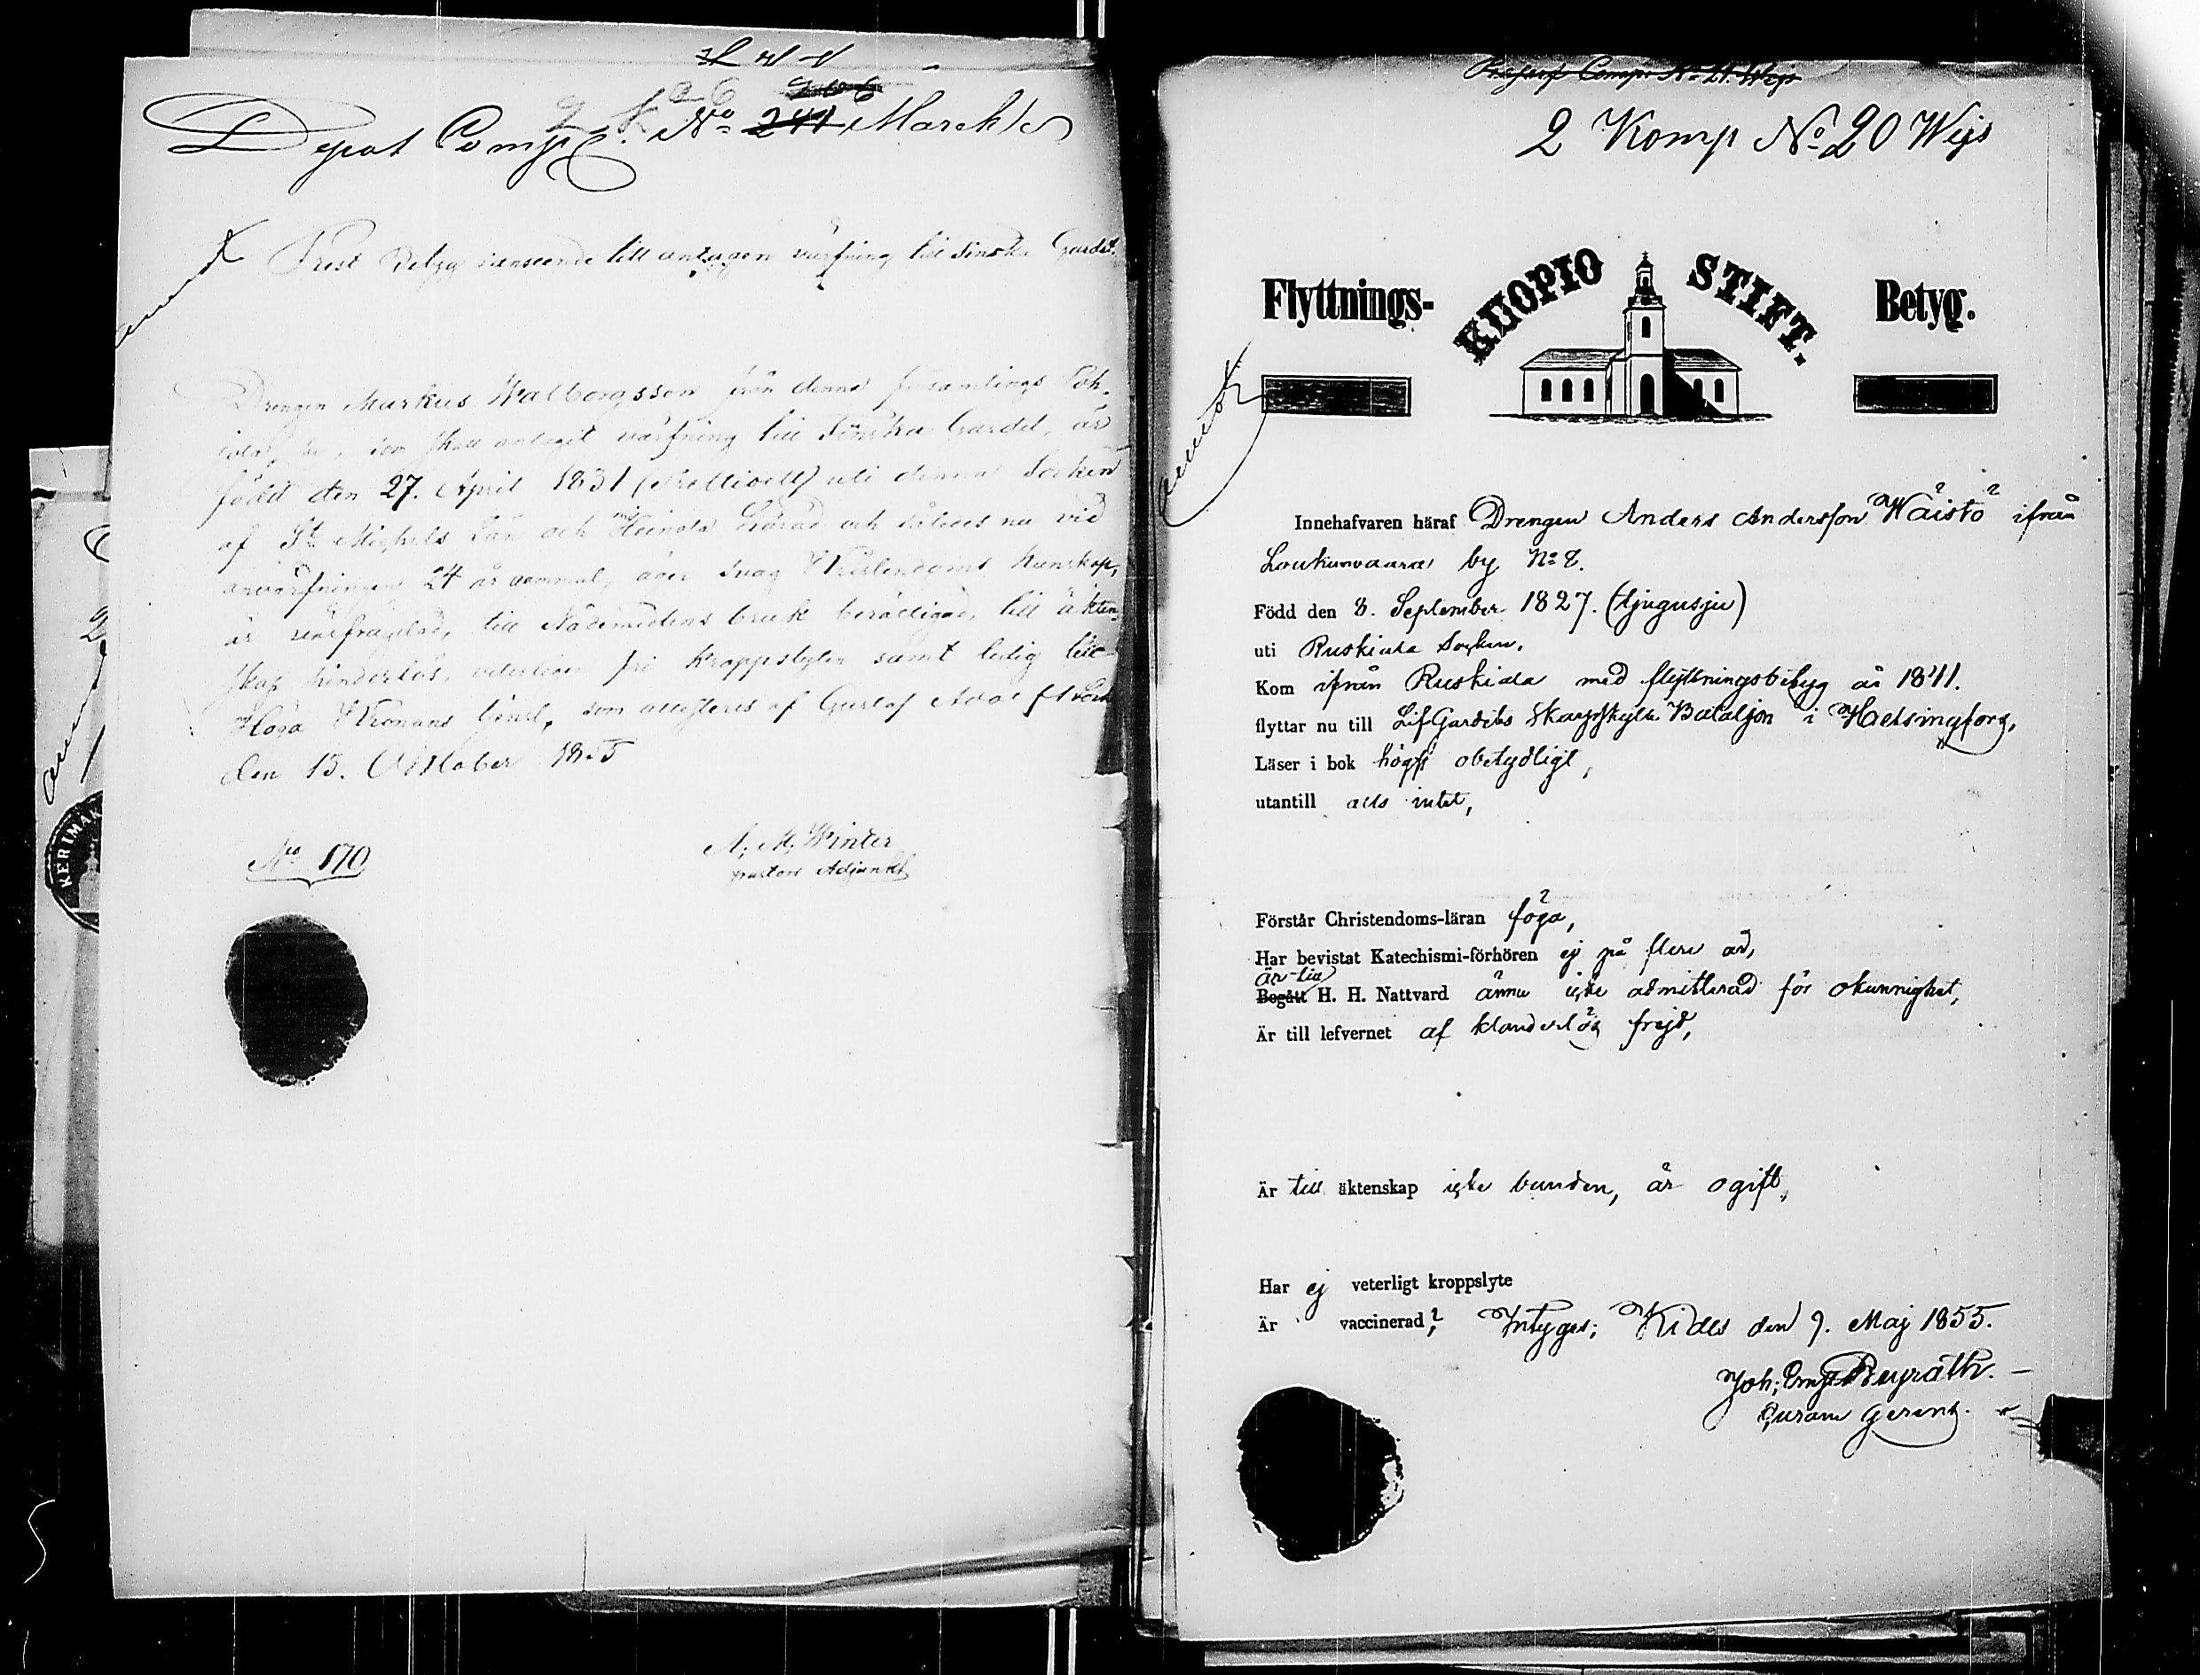 Depot Comp. No 241 March
Prest Betyg i anseende till antagen värfning till Finska Gardet.
Drengen Markus Walborgsson från denna församlings Poh-
som skall antagit värfning till Finska Gardet, är
född den 27. April 1831 (Trettioett) uti denna Socken
af St Michels Län och Heinola Härad och således nu vid
anvärfningen 24 år gammal, äger svag Christendoms kunskap,
är till Nådemedlens bruk berättigad, till äkten-
skap hinderlös, fri kroppslyten samt ledig till
Höga Kronans tjenst, som attesteras af Gustaf Adolfs Kyrka
den 15. October 1855
No 170
A. M. Winter
Pastors Adjunkt
KERIMÄK
Comp. No 21 Wejs
2 Komp No 20 Wejs
Flyttnings- KUOPIO STIFT. Betyg.
Innehafvaren häraf Drengen Anders Andersson Wäistö ifrån
Loukunvaara by No 8.
Född den 8. September 1827. (tjugusju)
uti Ruskiala Socken.
Kom ifrån Ruskiala med flyttningsbetyg år 1841.
flyttar nu till LifGardets Skarpskytte Bataljon i Helsingfors,
Läser i bok högst obetydligt,
utantill alls intet,
Förstår Christendoms-läran föga,
Har bevistat Katechismi-förhören ej på flere år,
är till
Begått H. H. Nattvard ännu icke admitterad för okunnighet,
Är till lefvernet af klanderlös frejd,
Är till äktenskap icke bunden, är ogift,
Har ej veterligt kroppslyte
Är vaccinerad; Intygas; Kides den 9. Maj 1855.
Joh; Ernst
Curam gerens.